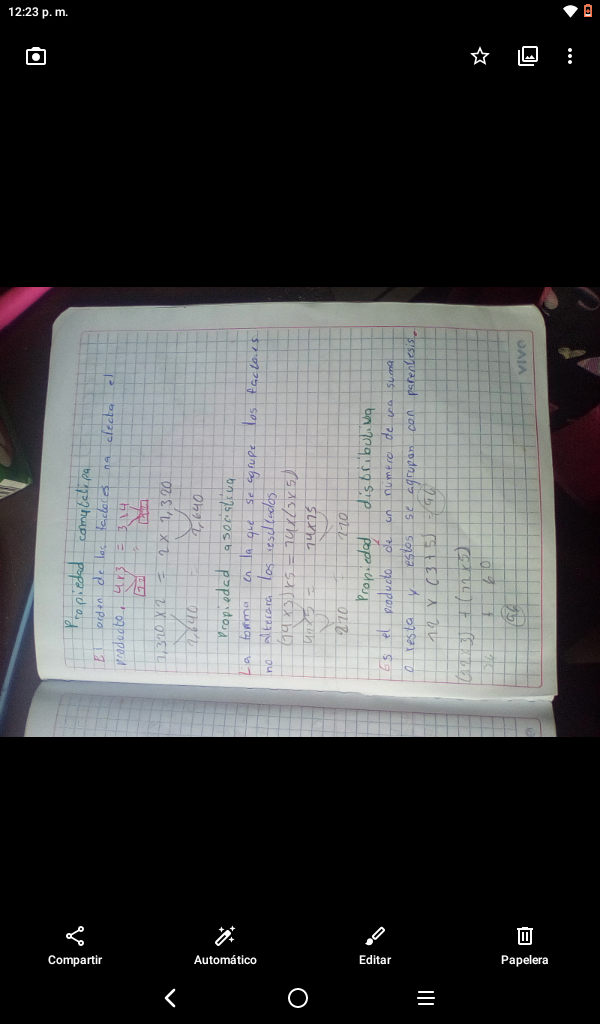 12:23 p. m.
Propiedad comutatipa
El orden de los factores no afecta el
producto. 4x3 = 3x4
12 12
1,320 x 2 = 2 x 1,320
2,640 2,640
Propiedad asociativa
La forma en la que se agrupe los factores
no alterara los resultados
(14x3)x5 = 14x(3x5)
14x15
210 210
Propiedad distributiva
Es el producto de un numero de una suma
o resta y estos se agrupan con parentesis.
12 x (3+5) = 96
(12x3) + (12x5)
+ 60
96
vivo
Compartir
Automático
Editar
Papelera